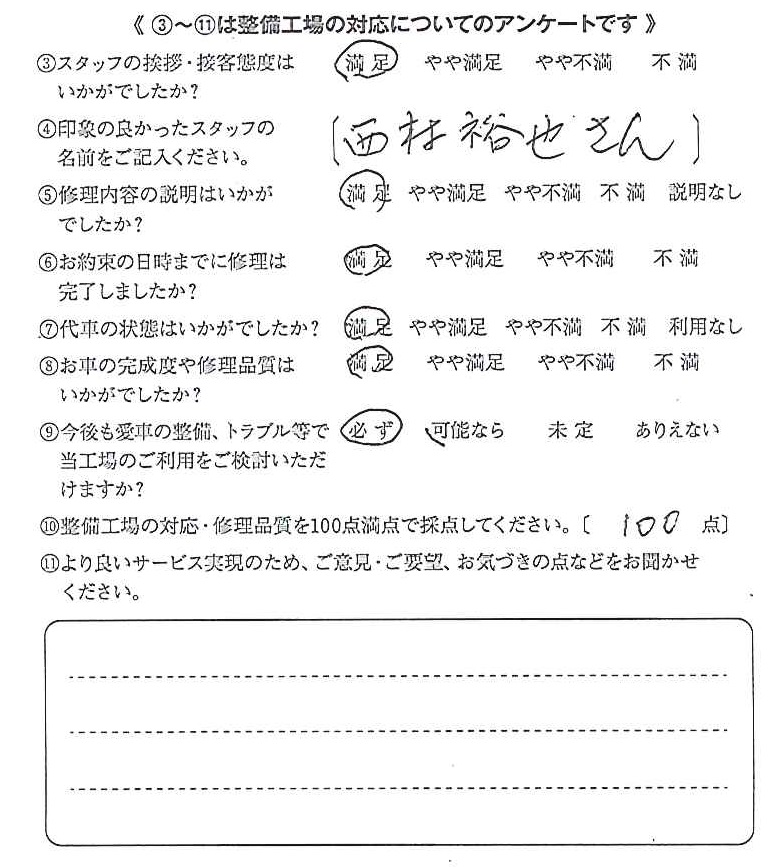 《 ③〜⑪は整備工場の対応についてのアンケートです 》
③スタッフの挨拶・接客態度は 満足 やや満足 やや不満 不満
いかがでしたか?
④印象の良かったスタッフの 〔西村裕也さん〕
名前をご記入ください。
⑤修理内容の説明はいかが 満足 やや満足 やや不満 不満 説明なし
でしたか?
⑥お約束の日時までに修理は 満足 やや満足 やや不満 不満
完了しましたか?
⑦代車の状態はいかがでしたか? 満足 やや満足 やや不満 不満 利用なし
⑧お車の完成度や修理品質は 満足 やや満足 やや不満 不満
いかがでしたか?
⑨今後も愛車の整備、トラブル等で 必ず 可能なら 未定 ありえない
当工場のご利用をご検討いただ
けますか?
⑩整備工場の対応・修理品質を100点満点で採点してください。〔 100 点〕
⑪より良いサービス実現のため、ご意見・ご要望、お気づきの点などをお聞かせ
ください。